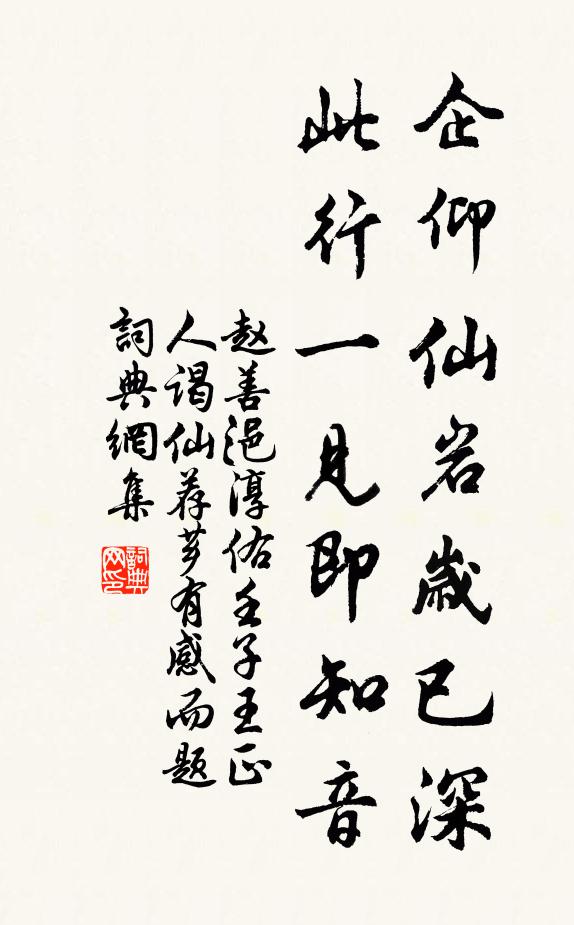 企仰仙岩歲已深
此行一見即知音
赵善浥淳佑壬子王正
人谒仙荐夢有感而题
詞典網集
詞典网印